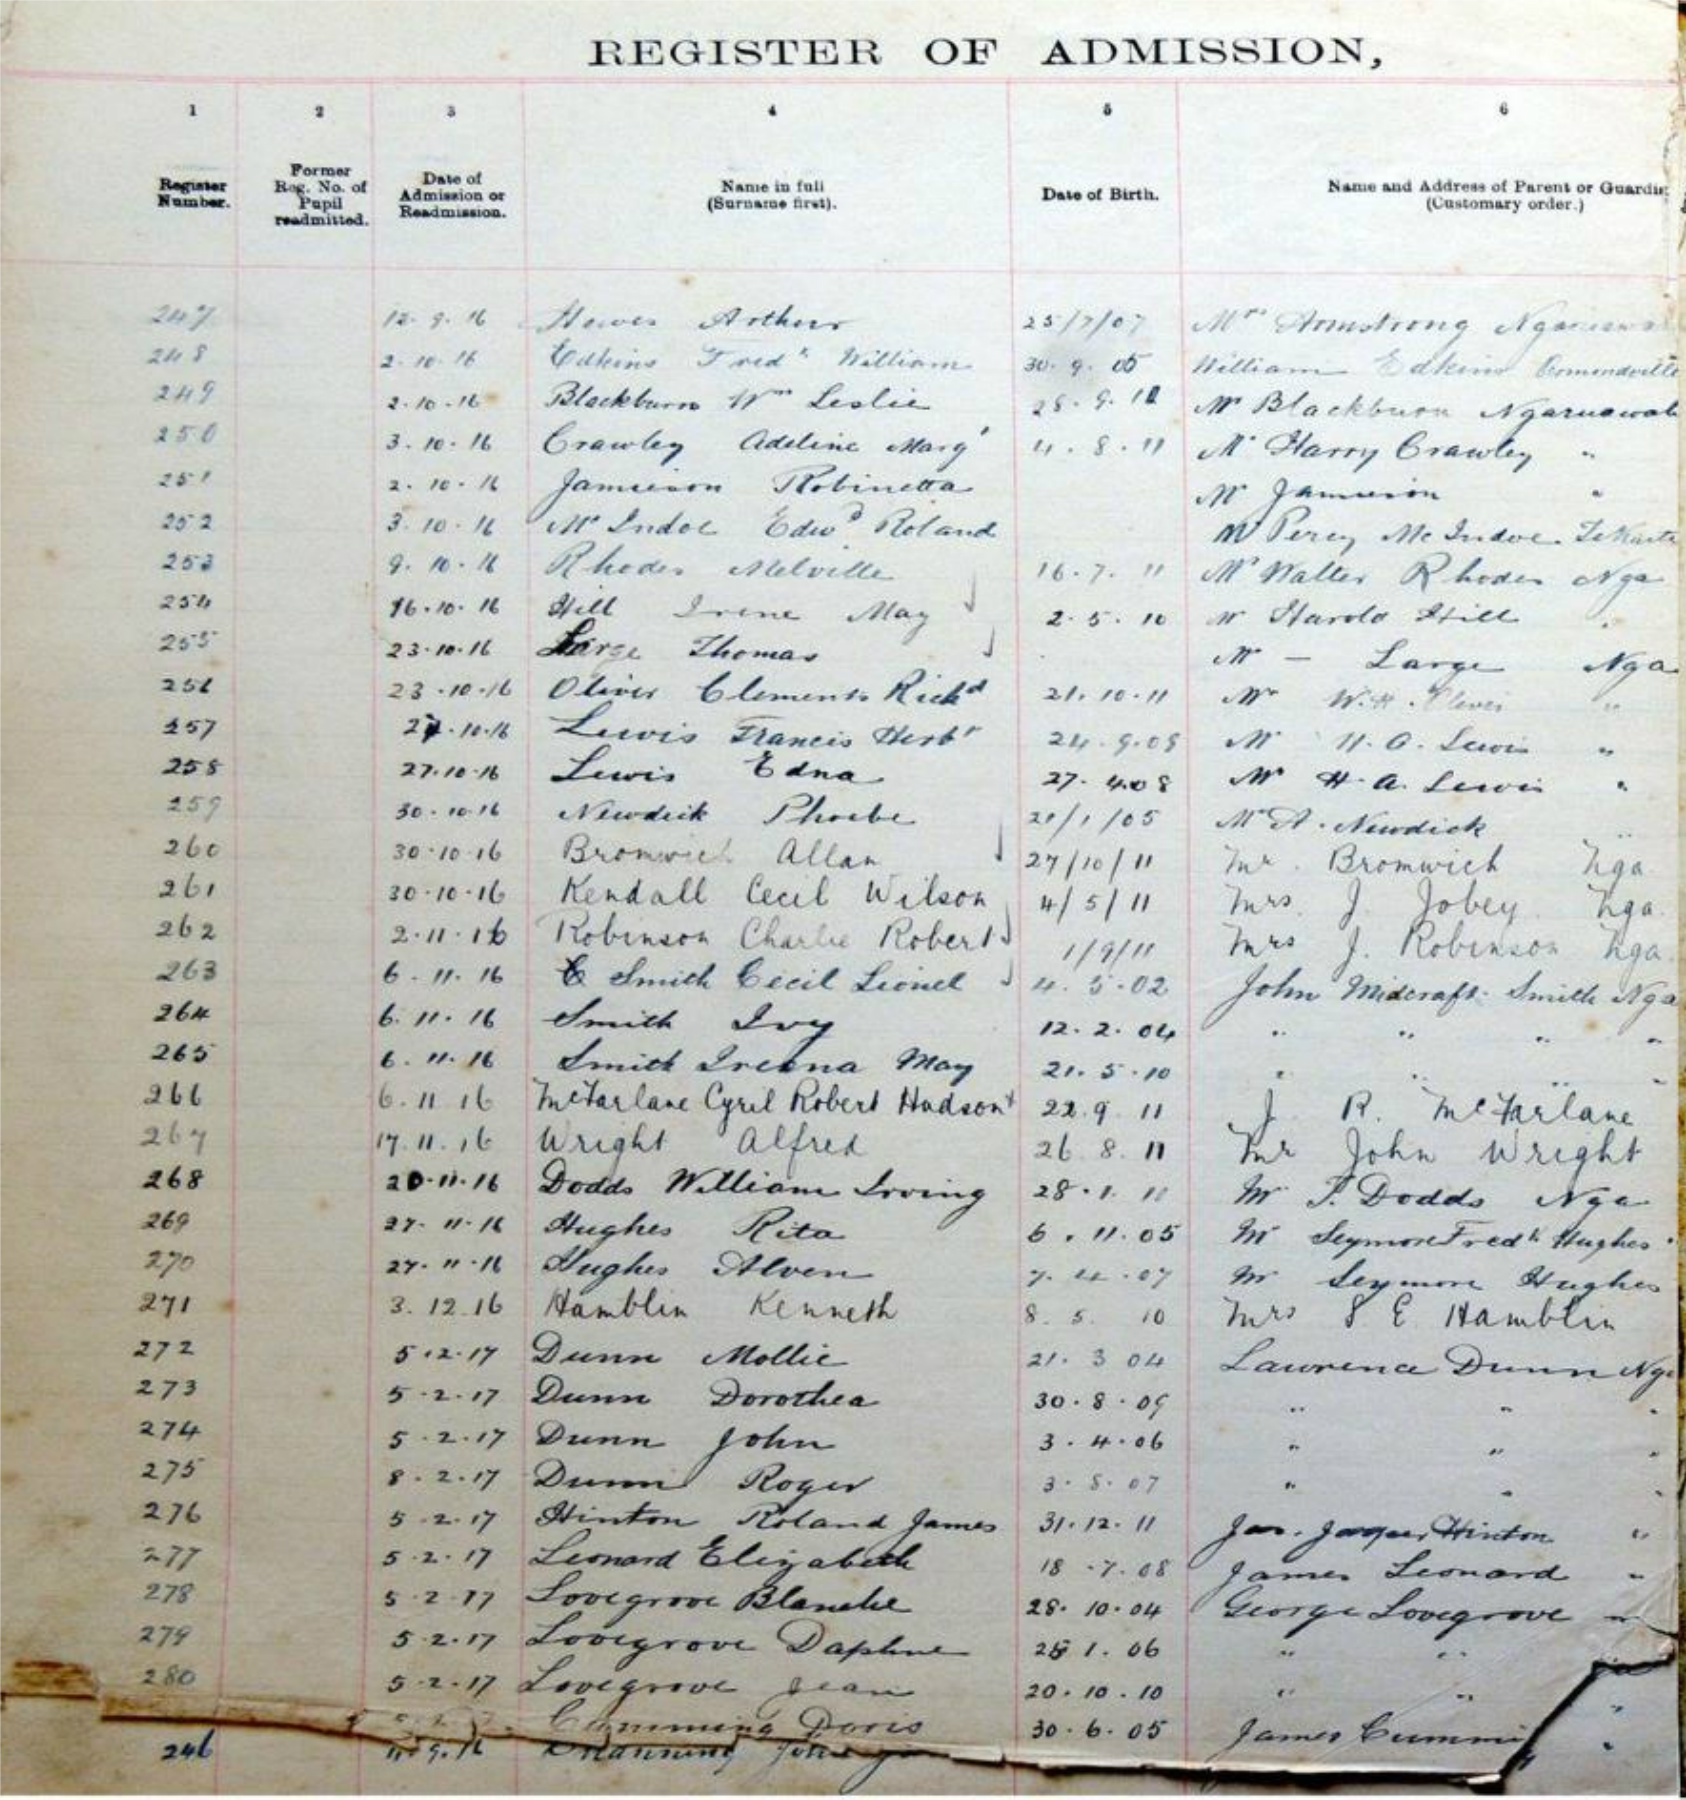 REGISTER OF ADMISSION,
1 2 3 4 5 6
Register Number. Former Reg. No. of Pupil readmitted. Date of Admission or Readmission. Name in full (Surname first). Date of Birth. Name and Address of Parent or Guardia (Customary order.)
247 12.9.16 Howes Arthur 25/7/07 Mrs Armstrong
248 2.10.16 Edkins Fredk William 30.9.05 William Edkins Ormondville
249 2.10.16 Blackburn Wm Leslie 28.9. Mr Blackburn Ngaruawah
250 3.10.16 Crawley Adeline Margt 4.8.11 Mr Harry Crawley "
251 2.10.16 Jamieson Robinetta Mr Jamieson "
252 3.10.16 McIndoe Edwd Roland Mr Percy McIndoe
253 9.10.16 Rhodes Melville 16.7.11 Mr Walter Rhodes Nga
254 16.10.16 Hill Irene May 2.5.10 Mr Harold Hill "
255 23.10.16 Large Thomas Mr — Large Nga
256 23.10.16 Oliver Clements Richd 21.10.11 Mr W.H. Oliver "
257 10.16 Lewis Francis Herbt 24.9.09 Mr H.A. Lewis "
258 27.10.16 Lewis Edna 27.4.08 Mr H.A. Lewis "
259 30.10.16 Newdick Phoebe 21/1/05 Mr A. Newdick "
260 30.10.16 Bromwich Allan 27/10/11 Mr. Bromwich Nga
261 30.10.16 Kendall Cecil Wilson 4/5/11 Mrs. J. Jobey Nga.
262 2.11.16 Robinson Charlie Robert 1/9/11 Mrs J. Robinson Nga.
263 6.11.16 Smith Cecil Lionel 4.5.02 John Midcraft Smith Nga
264 6.11.16 Smith Ivy 12.2.04 " " " "
265 6.11.16 Smith Ireena May 21.5.10 " " " "
266 6.11.16 McFarlane Cyril Robert Hudson 22.9.11 J. R. McFarlane
267 17.11.16 Wright Alfred 26.8.11 Mr John Wright
268 20.11.16 Dodds William Irving 28.1.11 Mr Dodds Nga
269 27.11.16 Hughes Rita 6.11.05 Mr Seymore Fredk Hughes
270 27.11.16 Hughes Alven 7.4.07 Mr Seymore Hughes
271 3.12.16 Hamblin Kenneth 8.5.10 Mrs S E Hamblin
272 5.2.17 Dunn Mollie 21.3.04 Lawrence Dunn Nga
273 5.2.17 Dunn Dorothea 30.8.09 " " "
274 5.2.17 Dunn John 3.4.06 " " "
275 8.2.17 Dunn Roger 3.8.07 " " "
276 5.2.17 Hinton Roland James 31.12.11 Jas. Jaques Hinton "
277 5.2.17 Leonard Elizabeth 18.7.08 James Leonard "
278 5.2.17 Lovegrove Blanche 28.10.04 George Lovegrove "
279 5.2.17 Lovegrove Daphne 1.06 " " "
280 5.2.17 Lovegrove Jean 20.10.10 " " "
Cumming Doris 30.6.05 James Cummi "
246 11.9.16 Manning John